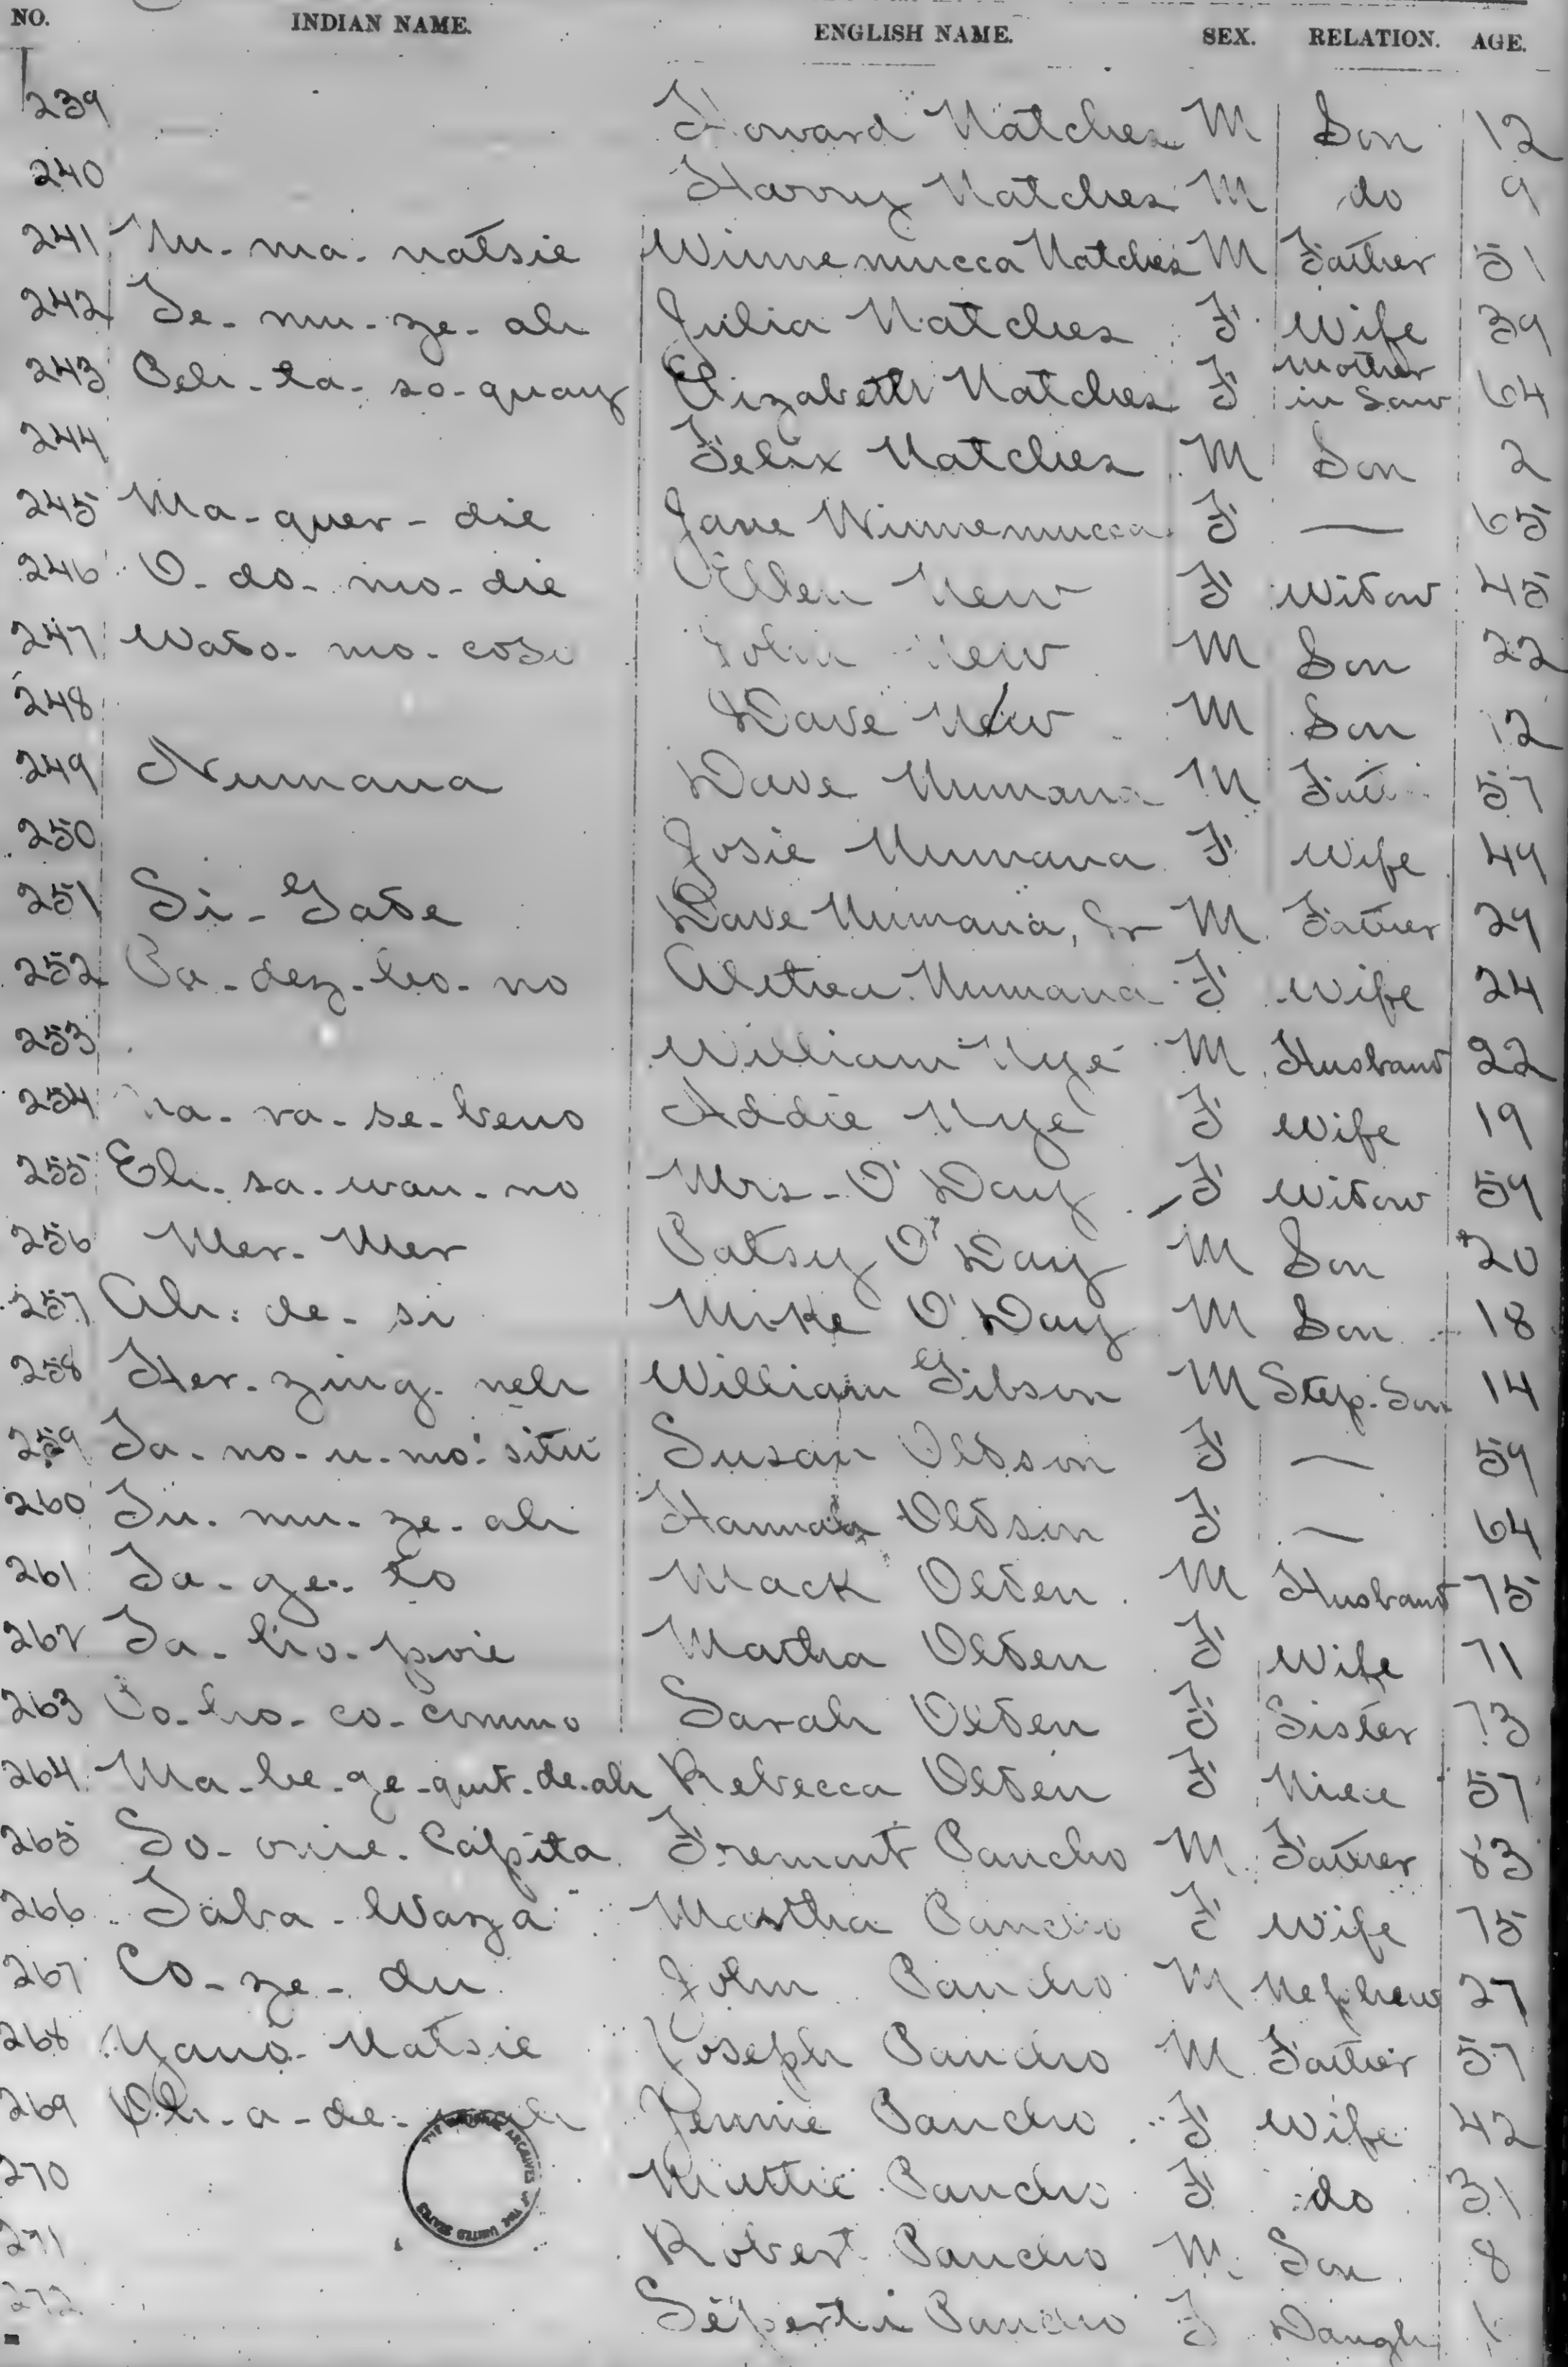 NO. INDIAN NAME. ENGLISH NAME. SEX. RELATION. AGE.
239 Howard Natches M Son 12
240 Harry Natches M do 9
241 Nu-ma-natsie Winnemucca Natches M Father 51
242 Te-mu-ze-ah Julia Natches F Wife 39
243 Peh-ta-so-quay Elizabeth Natches F Mother in Law 64
244 Felix Natches M Son 2
245 Ma-quer-die Jane Winnemucca F — 65
246 O-do-mo-die Ellen New F Widow 45
247 Wado-mo-code John New M Son 22
248 Dave New M Son 12
249 Numana Dave Numana M Fath 57
250 Josie Numana F Wife 49
251 Si-Gade Dave Numana, Jr M Father 29
252 Pa-dez-ho-no Alethea Numana F Wife 24
253 William Nye M Husband 22
254 -va-se-beno Addie Nye F Wife 19
255 Eh-sa-wau-no Mrs-O'Day F Widow 59
256 Mer-Mer Patsy O'Day M Son 20
257 Ah-de-si Mike O'Day M Son 18
258 Her-zing-neh William Gibson M Step-Son 14
259 Ta-no-u-mo-situ Susan Oldson F — 59
260 Tu-mu-ze-ah Hannah Oldson F — 64
261 Ta-ge-to Mack Olden M Husband 75
262 Ta-ho-poie Martha Olden F Wife 71
263 To-ho-co-commo Sarah Olden F Sister 73
264 Ma-he-ge-quit-de-ah Rebecca Olden F Niece 57
265 So-ovie-Capita Fremont Pancho M Father 83
266 Taba-Waza Martha Pancho F Wife 75
267 Co-ze-du John Pancho M Nephew 27
268 Yano-Natsie Joseph Pancho M Father 57
269 Oh-a-de- Jennie Pancho F Wife 42
270 Mattie Pancho F do 31
271 Robert Pancho M Son 8
272 Pancho F Daugh 1
THE NATIONAL ARCHIVES OF THE UNITED STATES